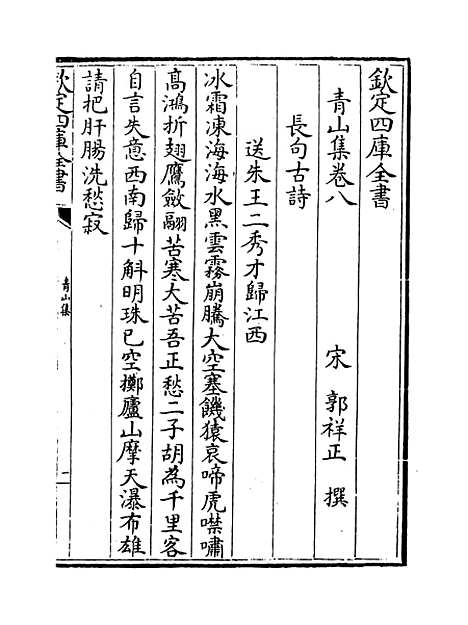 欽定四庫全書
青山集卷八
宋 郭祥正 撰
長句古詩
送朱王二秀才歸江西
冰霜凍海海水黑雲霧崩騰大空塞饑猿哀啼虎噤嘯
高鴻折翅鷹斂翮苦寒大苦吾正愁二子胡為千里客
自言失意西南歸十斛明珠已空擲廬山摩天瀑布雄
請把肝腸洗愁寂
欽定四庫全書
青山集
一